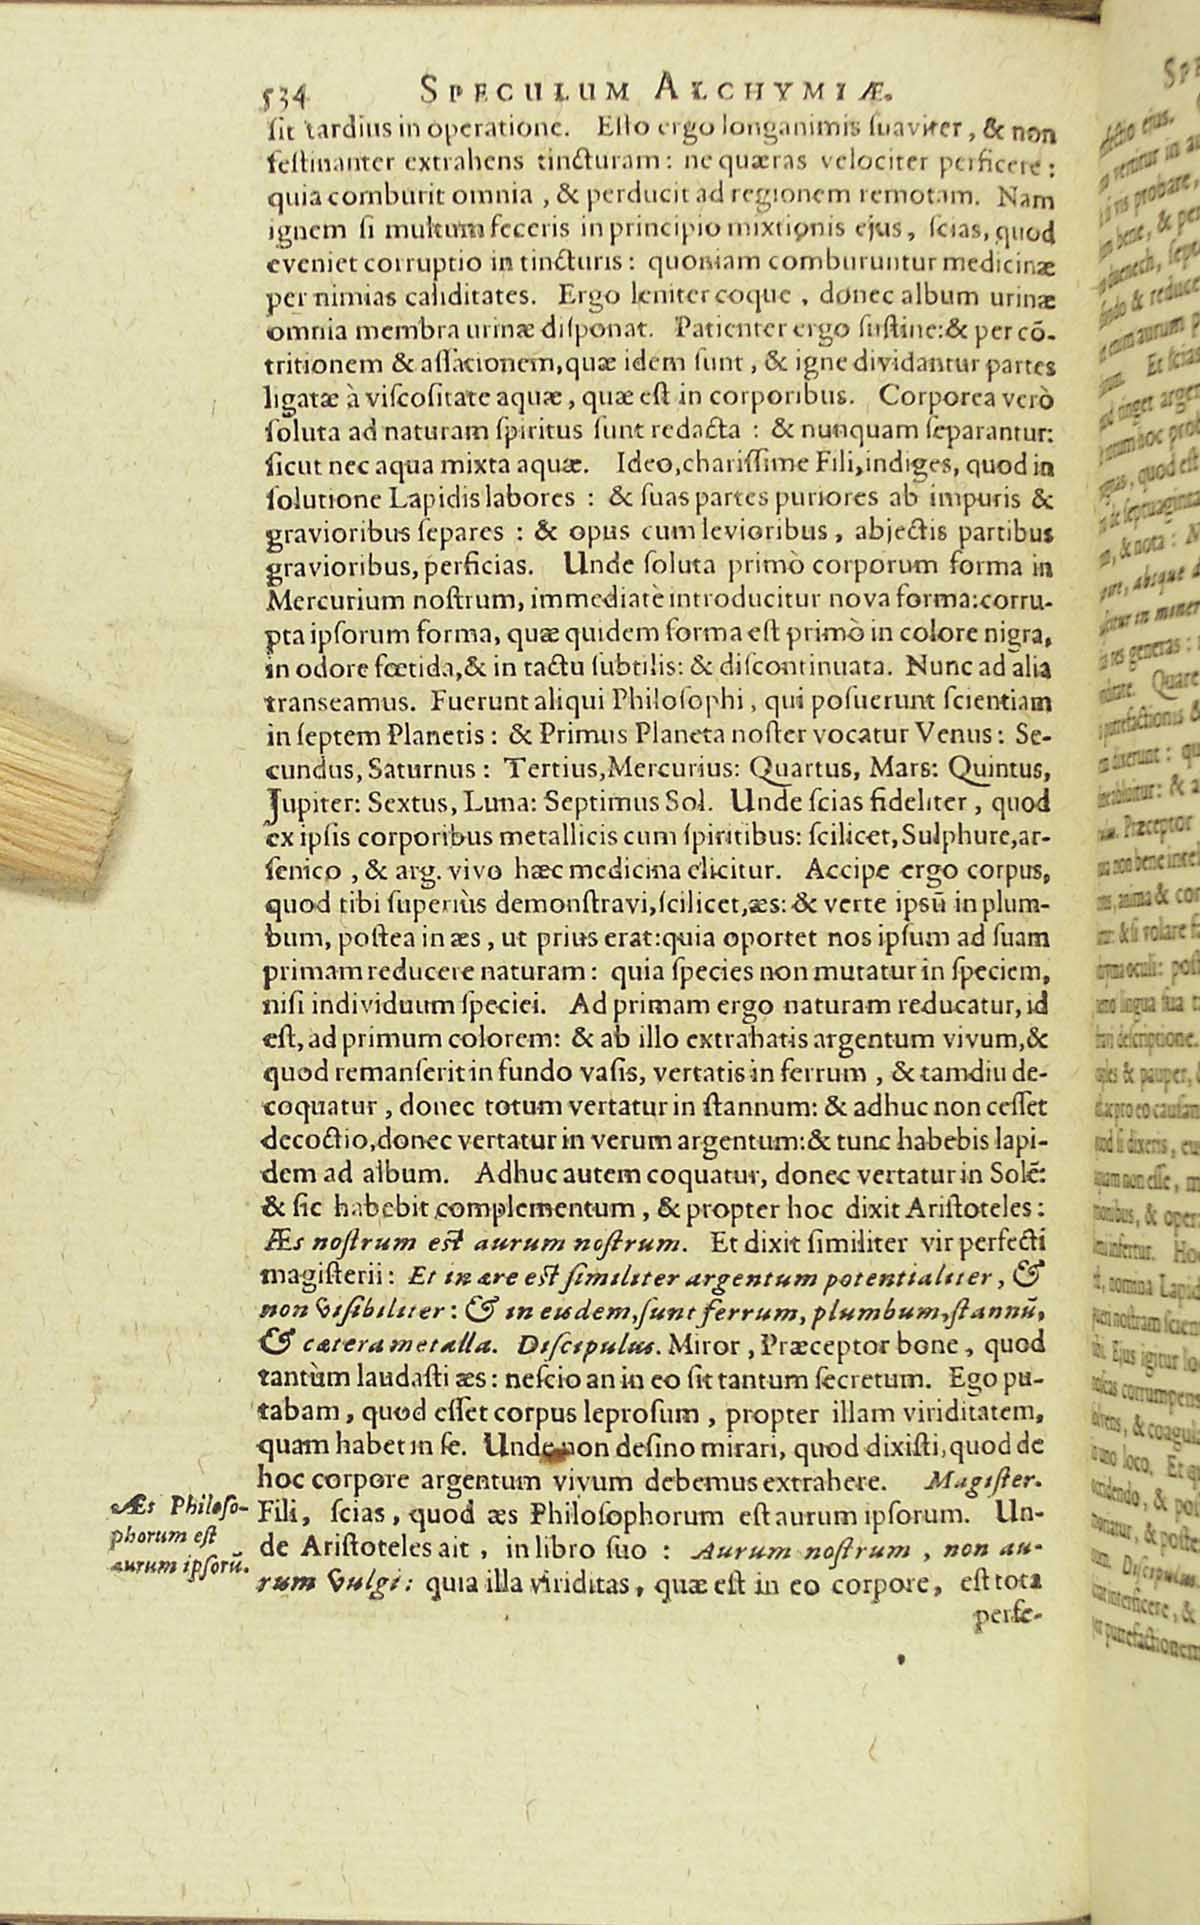 534 SPECULUM ALCHYMIÆ.
ſit tardius in operatione. Eſto ergo longanimis ſuaviter, & non
feſtinanter extrahens tincturam: ne quæras velociter perficere:
quia comburit omnia, & perducit ad regionem remotam. Nam
ignem ſi multum feceris in principio mixtionis ejus, ſcias, quod
eveniet corruptio in tincturis: quoniam comburuntur medicinæ
per nimias caliditates. Ergo leniter coque, donec album urinæ
omnia membra urinæ diſponat. Patienter ergo ſuſtine: & per cõ-
tritionem & aſſationem, quæ idem ſunt, & igne dividantur partes
ligatæ à viſcoſitate aquæ, quæ eſt in corporibus. Corporea verò
ſoluta ad naturam ſpiritus ſunt redacta: & nunquam ſeparantur:
ſicut nec aqua mixta aquæ. Ideo, chariſſime Fili, indiges, quod in
ſolutione Lapidis labores: & ſuas partes puriores ab impuris &
gravioribus ſepares: & opus cum levioribus, abjectis partibus
gravioribus, perficias. Unde ſoluta primò corporum forma in
Mercurium noſtrum, immediatè introducitur nova forma: corru-
pta ipſorum forma, quæ quidem forma eſt primò in colore nigra,
in odore fœtida, & in tactu ſubtilis: & diſcontinuata. Nunc ad alia
tranſeamus. Fuerunt aliqui Philoſophi, qui poſuerunt ſcientiam
in ſeptem Planetis: & Primus Planeta noſter vocatur Venus: Se-
cundus, Saturnus: Tertius, Mercurius: Quartus, Mars: Quintus,
Jupiter: Sextus, Luna: Septimus Sol. Unde ſcias fideliter, quod
ex ipſis corporibus metallicis cum ſpiritibus: ſcilicet, Sulphure, ar-
ſenico, & arg. vivo hæc medicina elicitur. Accipe ergo corpus,
quod tibi ſuperiùs demonſtravi, ſcilicet, æs: & verte ipſũ in plum-
bum, poſtea in æs, ut prius erat: quia oportet nos ipſum ad ſuam
primam reducere naturam: quia ſpecies non mutatur in ſpeciem,
niſi individuum ſpeciei. Ad primam ergo naturam reducatur, id
eſt, ad primum colorem: & ab illo extrahatis argentum vivum, &
quod remanſerit in fundo vaſis, vertatis in ferrum, & tamdiu de-
coquatur, donec totum vertatur in ſtannum: & adhuc non ceſſet
decoctio, donec vertatur in verum argentum: & tunc habebis lapi-
dem ad album. Adhuc autem coquatur, donec vertatur in Solẽ:
& ſic habebit complementum, & propter hoc dixit Ariſtoteles:
Æs noſtrum eſt aurum noſtrum. Et dixit ſimiliter vir perfecti
magiſterii: Et in ære eſt ſimiliter argentum potentialiter, &
non viſibiliter: & in eisdem, ſunt ferrum, plumbum, ſtannũ,
& cætera metalla. Diſcipulus. Miror, Præceptor bone, quod
tantùm laudaſti æs: neſcio an in eo ſit tantum ſecretum. Ego pu-
tabam, quod eſſet corpus leproſum, propter illam viriditatem,
quam habet in ſe. Unde non deſino mirari, quod dixiſti, quod de
hoc corpore argentum vivum debemus extrahere. Magiſter.
Fili, ſcias, quod æs Philoſophorum eſt aurum ipſorum. Un-
de Ariſtoteles ait, in libro ſuo: Aurum noſtrum, non au-
rum vulgi: quia illa viriditas, quæ eſt in eo corpore, eſt tota
perfe-
Æs Philoſo-
phorum eſt
aurum ipſorũ.